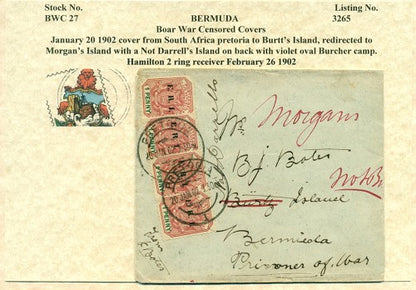 Stock No. BERMUDA Listing No.
BWC 27 3265
Boar War Censored Covers
January 20 1902 cover from South Africa pretoria to Burtt's Island, redirected to
Morgan's Island with a Not Darrell's Island on back with violet oval Burcher camp.
Hamilton 2 ring receiver February 26 1902
1 PENNY
E.R.I.
Morgans
Not
Island
Bermuda
Prisoner of War
From